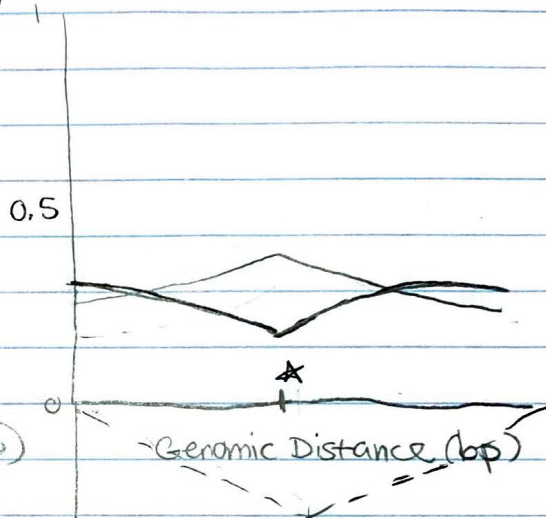 1
0.5
☆
0
) Genomic Distance (bp)